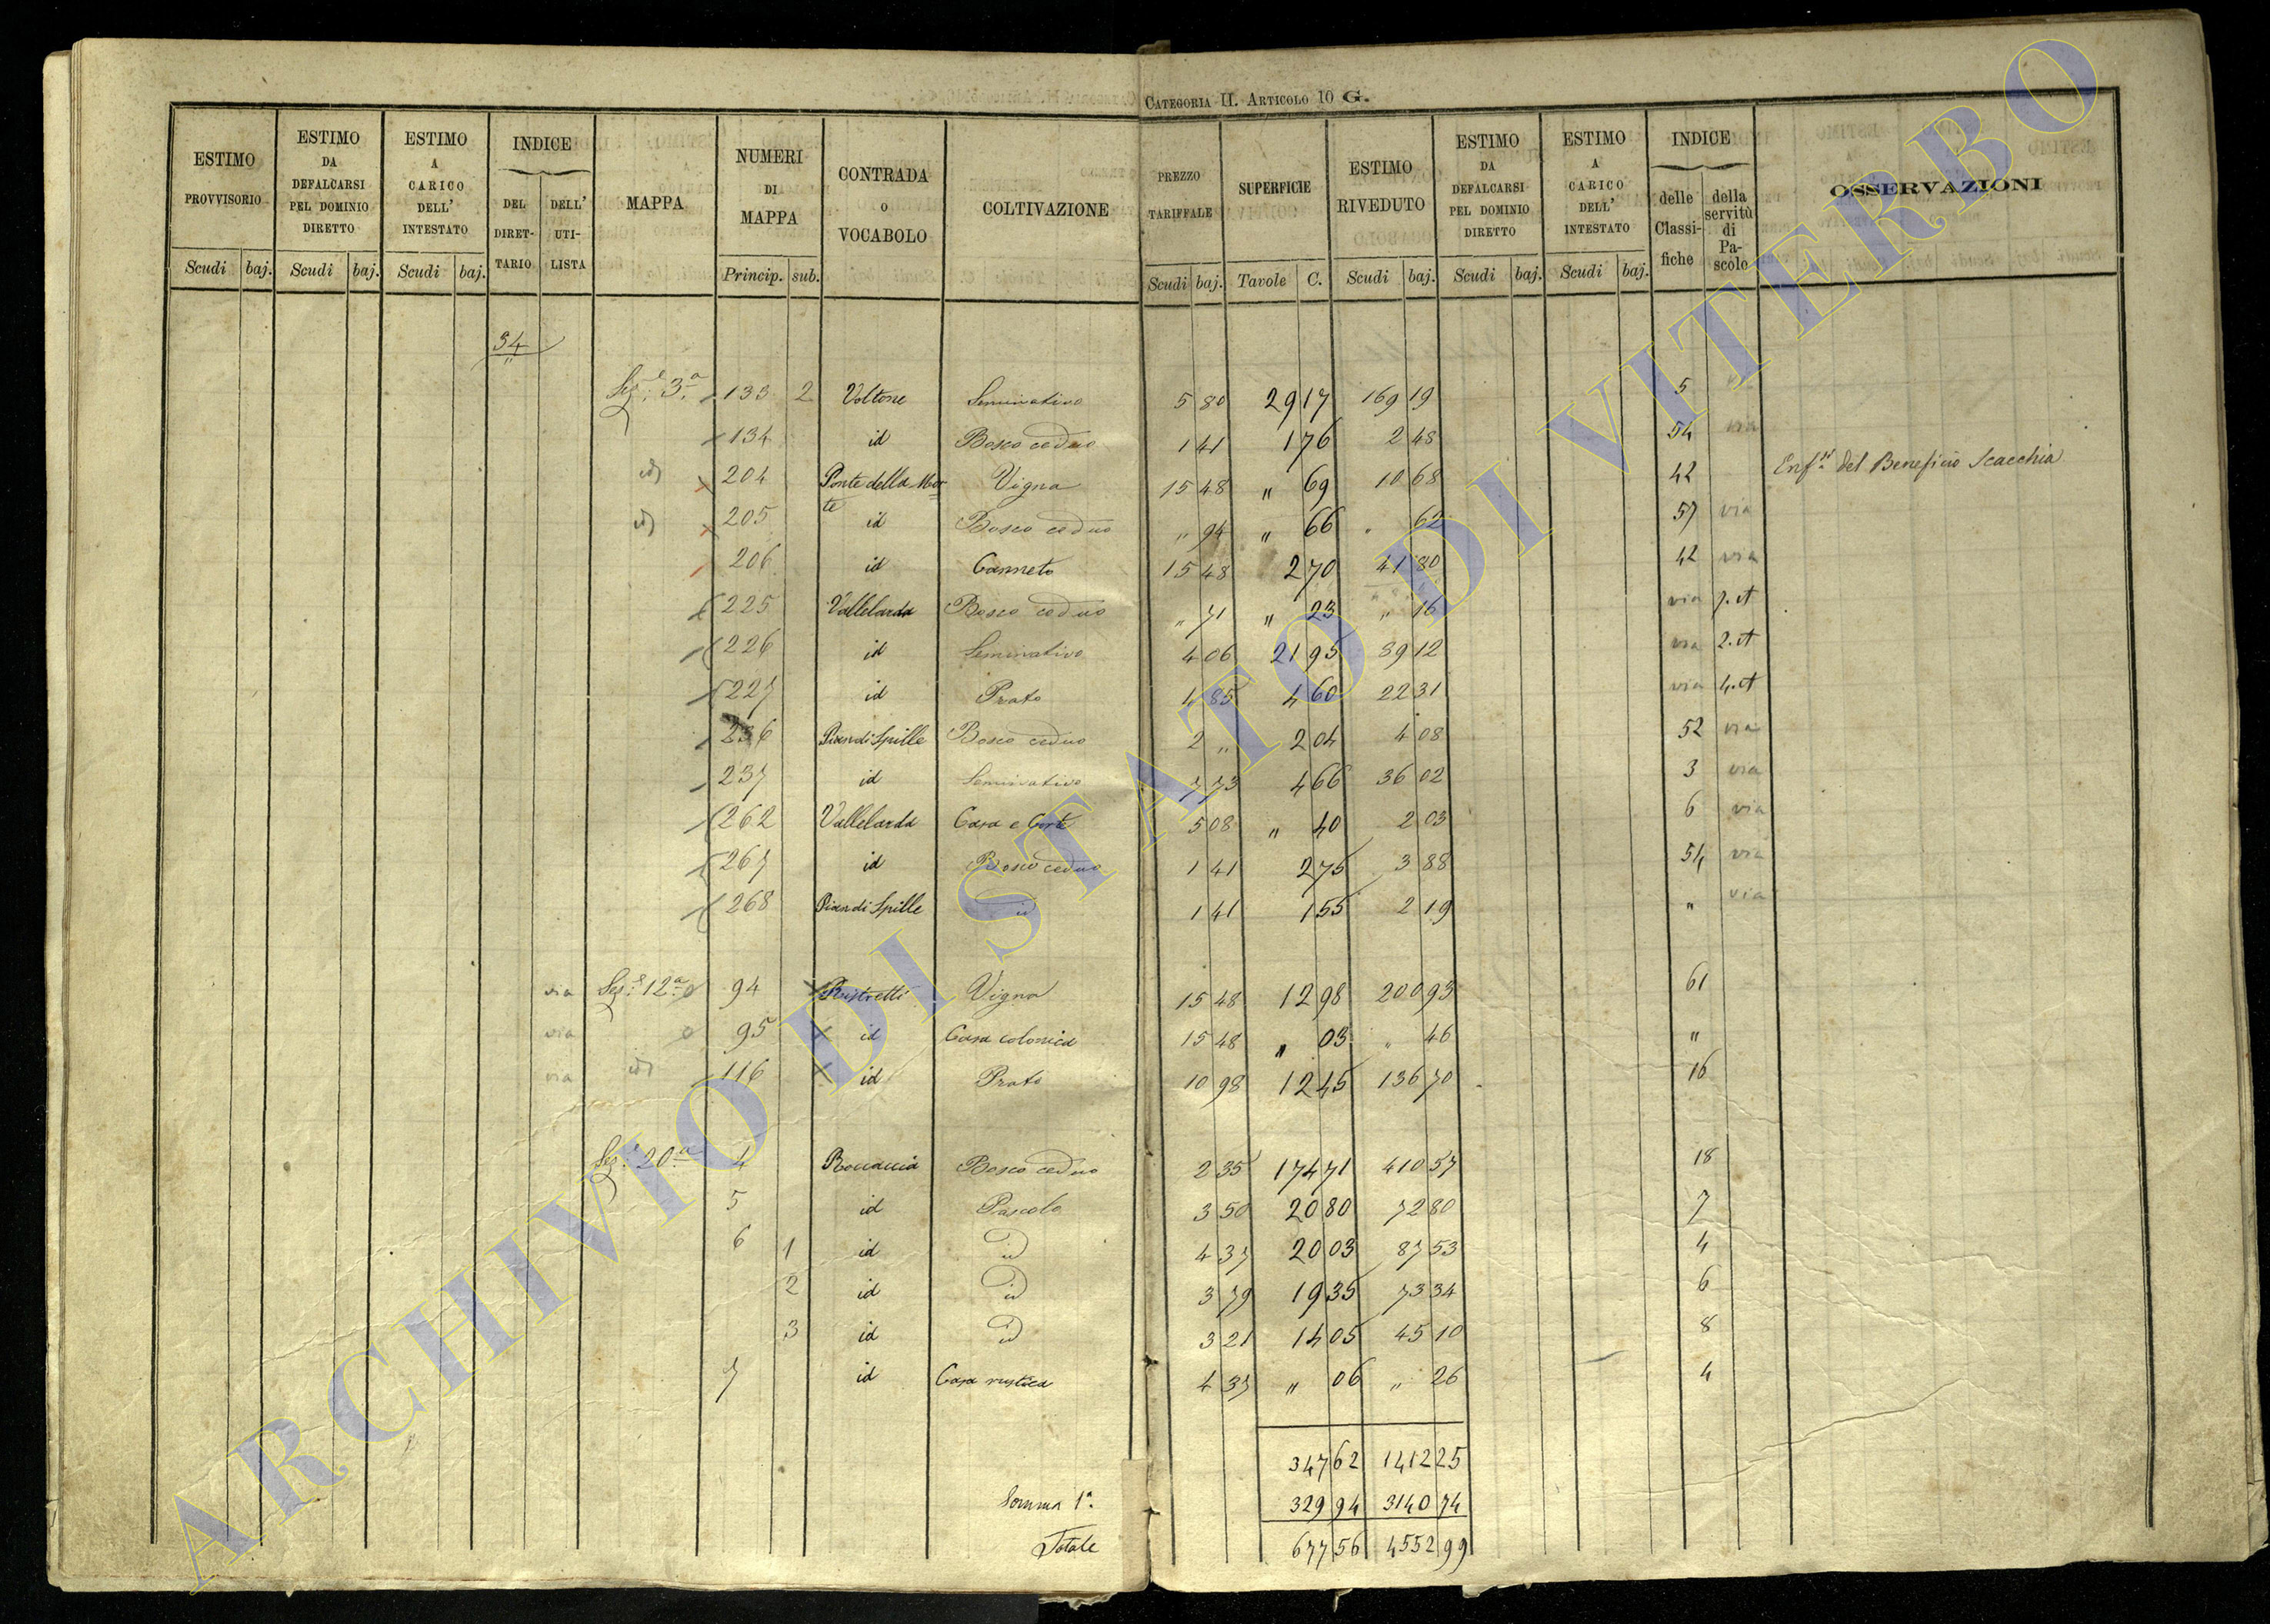 CATEGORIA II. ARTICOLO 10 G.
ESTIMO PROVVISORIO Scudi baj.
ESTIMO DA DEFALCARSI PEL DOMINIO DIRETTO Scudi baj.
ESTIMO A CARICO DELL' INTESTATO Scudi baj.
INDICE DEL DIRET-TARIO DELL' UTI-LISTA
MAPPA
NUMERI DI MAPPA Princip. sub.
CONTRADA O VOCABOLO
COLTIVAZIONE
PREZZO TARIFFALE Scudi baj.
SUPERFICIE Tavole C.
ESTIMO RIVEDUTO Scudi baj.
ESTIMO DA DEFALCARSI PEL DOMINIO DIRETTO Scudi baj.
ESTIMO A CARICO DELL' INTESTATO Scudi baj.
INDICE delle Classi-fiche della servitù di Pa-scolo
OSSERVAZIONI
34
Sez.e 3.a 133 2 Voltone Seminativo 5 80 29 17 169 19 5
134 id Bosco ceduo 1 41 1 76 2 48 54 via
id 204 Ponte della Mor-te Vigna 15 48 " 69 10 68 42 Enf.a del Beneficio Scacchia
id 205 id Bosco ceduo " 94 " 66 " 62 57 via
206 id Canneto 15 48 2 70 41 80 42 via
225 Vallelarda Bosco ceduo " 71 " 23 " 16 via
226 id Seminativo 4 06 21 95 89 12 via 2.et
227 id Prato 4 85 4 60 22 31 via 4.et
236 Pian di Spille Bosco ceduo 2 " 2 04 4 08 52 via
237 id Seminativo 7 73 4 66 36 02 3 via
262 Vallelarda Casa e Corte 5 08 " 40 2 03 6 via
267 id Bosco ceduo 1 41 2 75 3 88 54 via
268 Pian di Spille id 1 41 1 55 2 19 " via
via Sez.e 12.a 94 Ristretti Vigna 15 48 12 98 200 93 61
via 95 id Casa colonica 15 48 " 03 " 46 "
via id 116 id Prato 10 98 12 45 136 70 16
Sez.e 20.a 4 Roccaccia Bosco ceduo 2 35 174 71 410 57 18
5 id Pascolo 3 50 20 80 72 80 7
6 1 id id 4 37 20 03 87 53 4
2 id id 3 79 19 35 73 34 6
3 id id 3 21 14 05 45 10 8
7 id Casa rustica 4 37 " 06 " 26 4
347 62 1412 25
Somma 1.a 329 94 3140 74
Totale 677 56 4552 99
ARCHIVIO DI STATO DI VITERBO